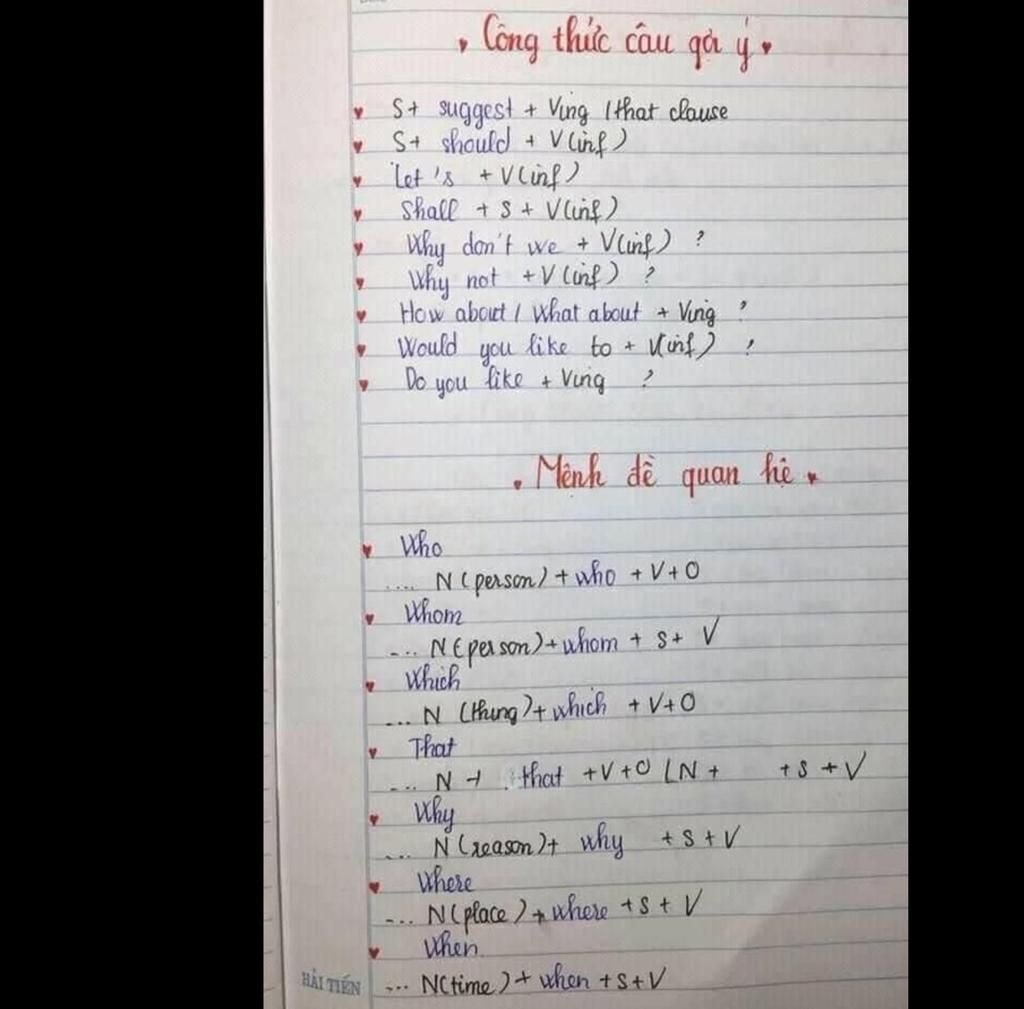 Công thức câu gợi ý
S+ suggest + Ving / that clause
S+ should + V(inf)
Let's + V(inf)
Shall + S + V(inf)
Why don't we + V(inf) ?
Why not + V(inf) ?
How about / What about + Ving ?
Would you like to + V(inf) ?
Do you like + Ving ?
Mệnh đề quan hệ
Who
.... N (person) + who + V + O
Whom
... N (person) + whom + S + V
Which
... N (thing) + which + V + O
That
... N + that + V + O / N + + S + V
Why
... N (reason) + why + S + V
Where
... N (place) + where + S + V
When
... N (time) + when + S + V
HẢI TIẾN